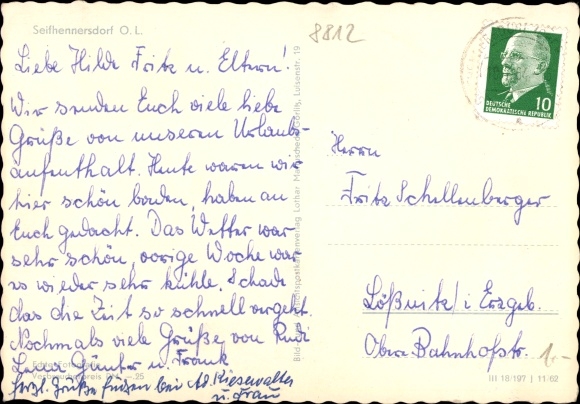 Seifhennersdorf O. L.
8812
Liebe Hilde Fritz u. Eltern!
Wir senden Euch viele liebe
Grüße von unseren Urlaubs-
aufenthalt. Heute waren wir
hier schön baden, haben an
Euch gedacht. Das Wetter war
sehr schön, vorige Woche war
es wieder sehr kühle. Schade
das die Zeit so schnell vergeht.
Nochmals viele Grüße von Rudi
Günter u. Frank
herzl. Grüße fügen bei Ad. Kiesewalter
u. Frau
Echte Foto
Verbraucherpreis -.25
Lothar Görlitz, Luisenstr. 19
DEUTSCHE
DEMOKRATISCHE REPUBLIK
10
Herrn
Fritz Schellenberger
Lößnitz / i. Erzgeb.
Obere Bahnhofstr.
1.-
III 18/197 | 11/62